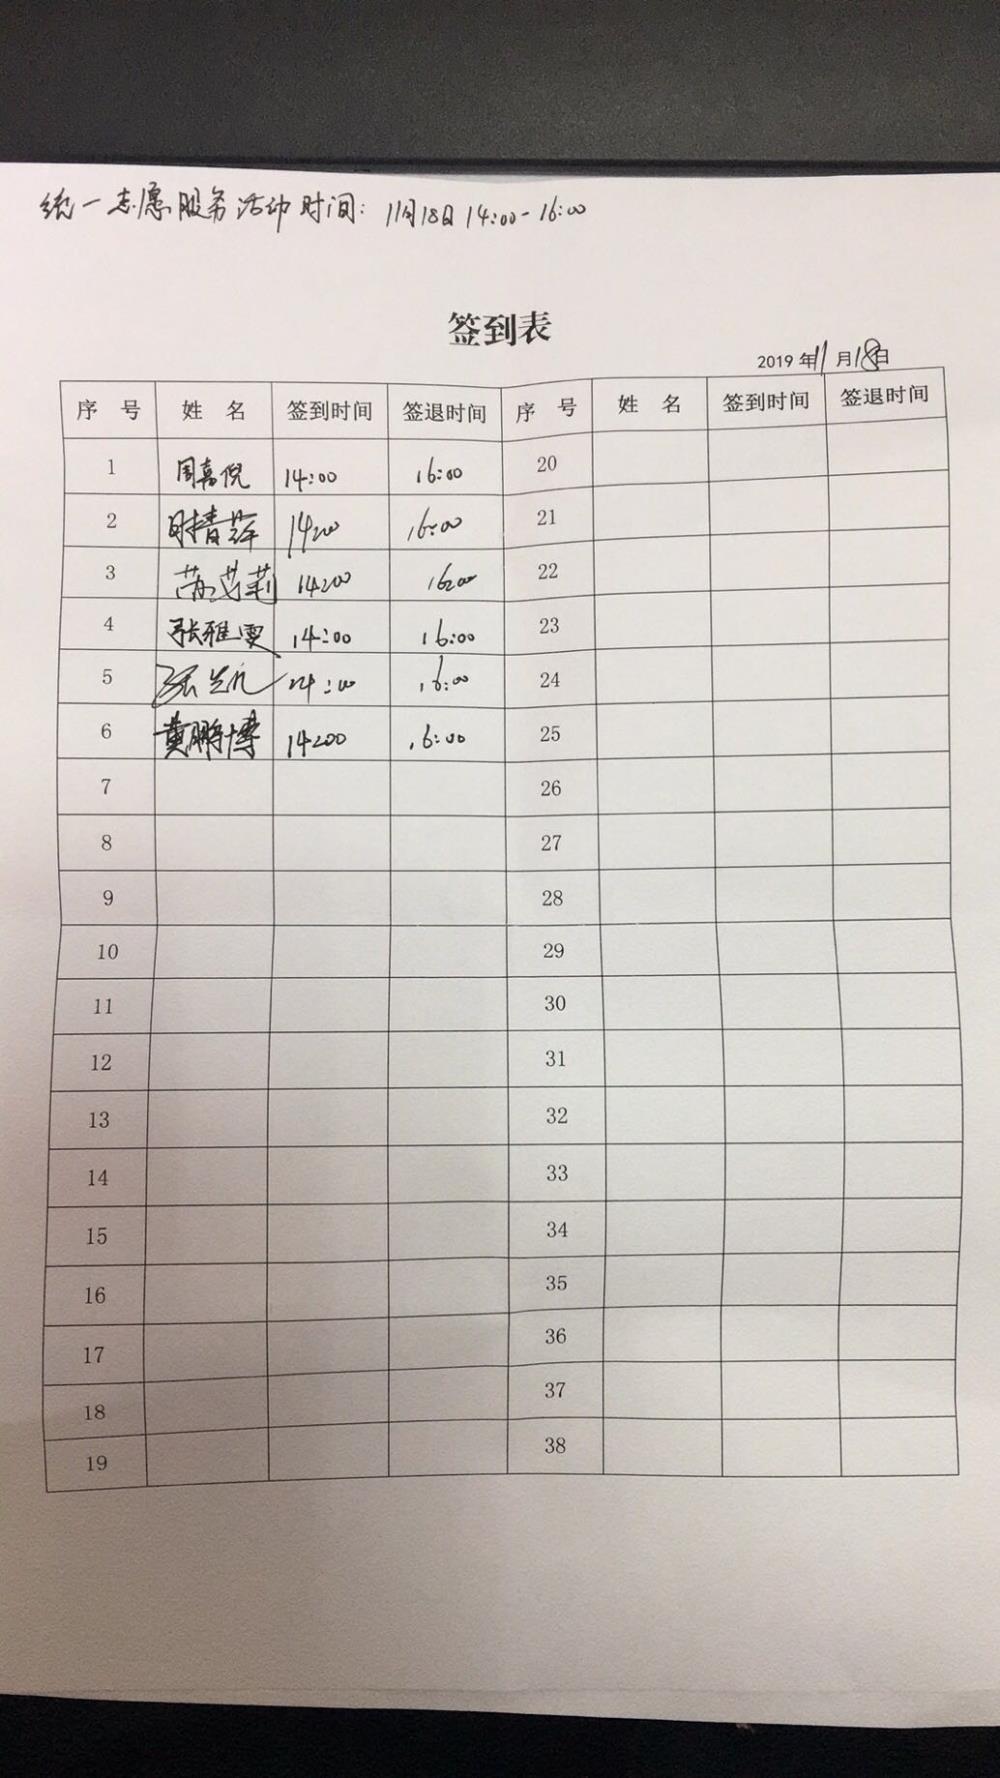 统一志愿服务活动时间：11月18日 14:00-16:00
签到表
2019年11月18日
序 号 姓 名 签到时间 签退时间 序 号 姓 名 签到时间 签退时间
1 周嘉倪 14:00 16:00 20
2 14:00 16:00 21
3 莉 14:00 16:00 22
4 张雅雯 14:00 16:00 23
5 张 14:00 16:00 24
6 黄鹏博 14:00 16:00 25
7 26
8 27
9 28
10 29
11 30
12 31
13 32
14 33
15 34
16 35
17 36
18 37
19 38